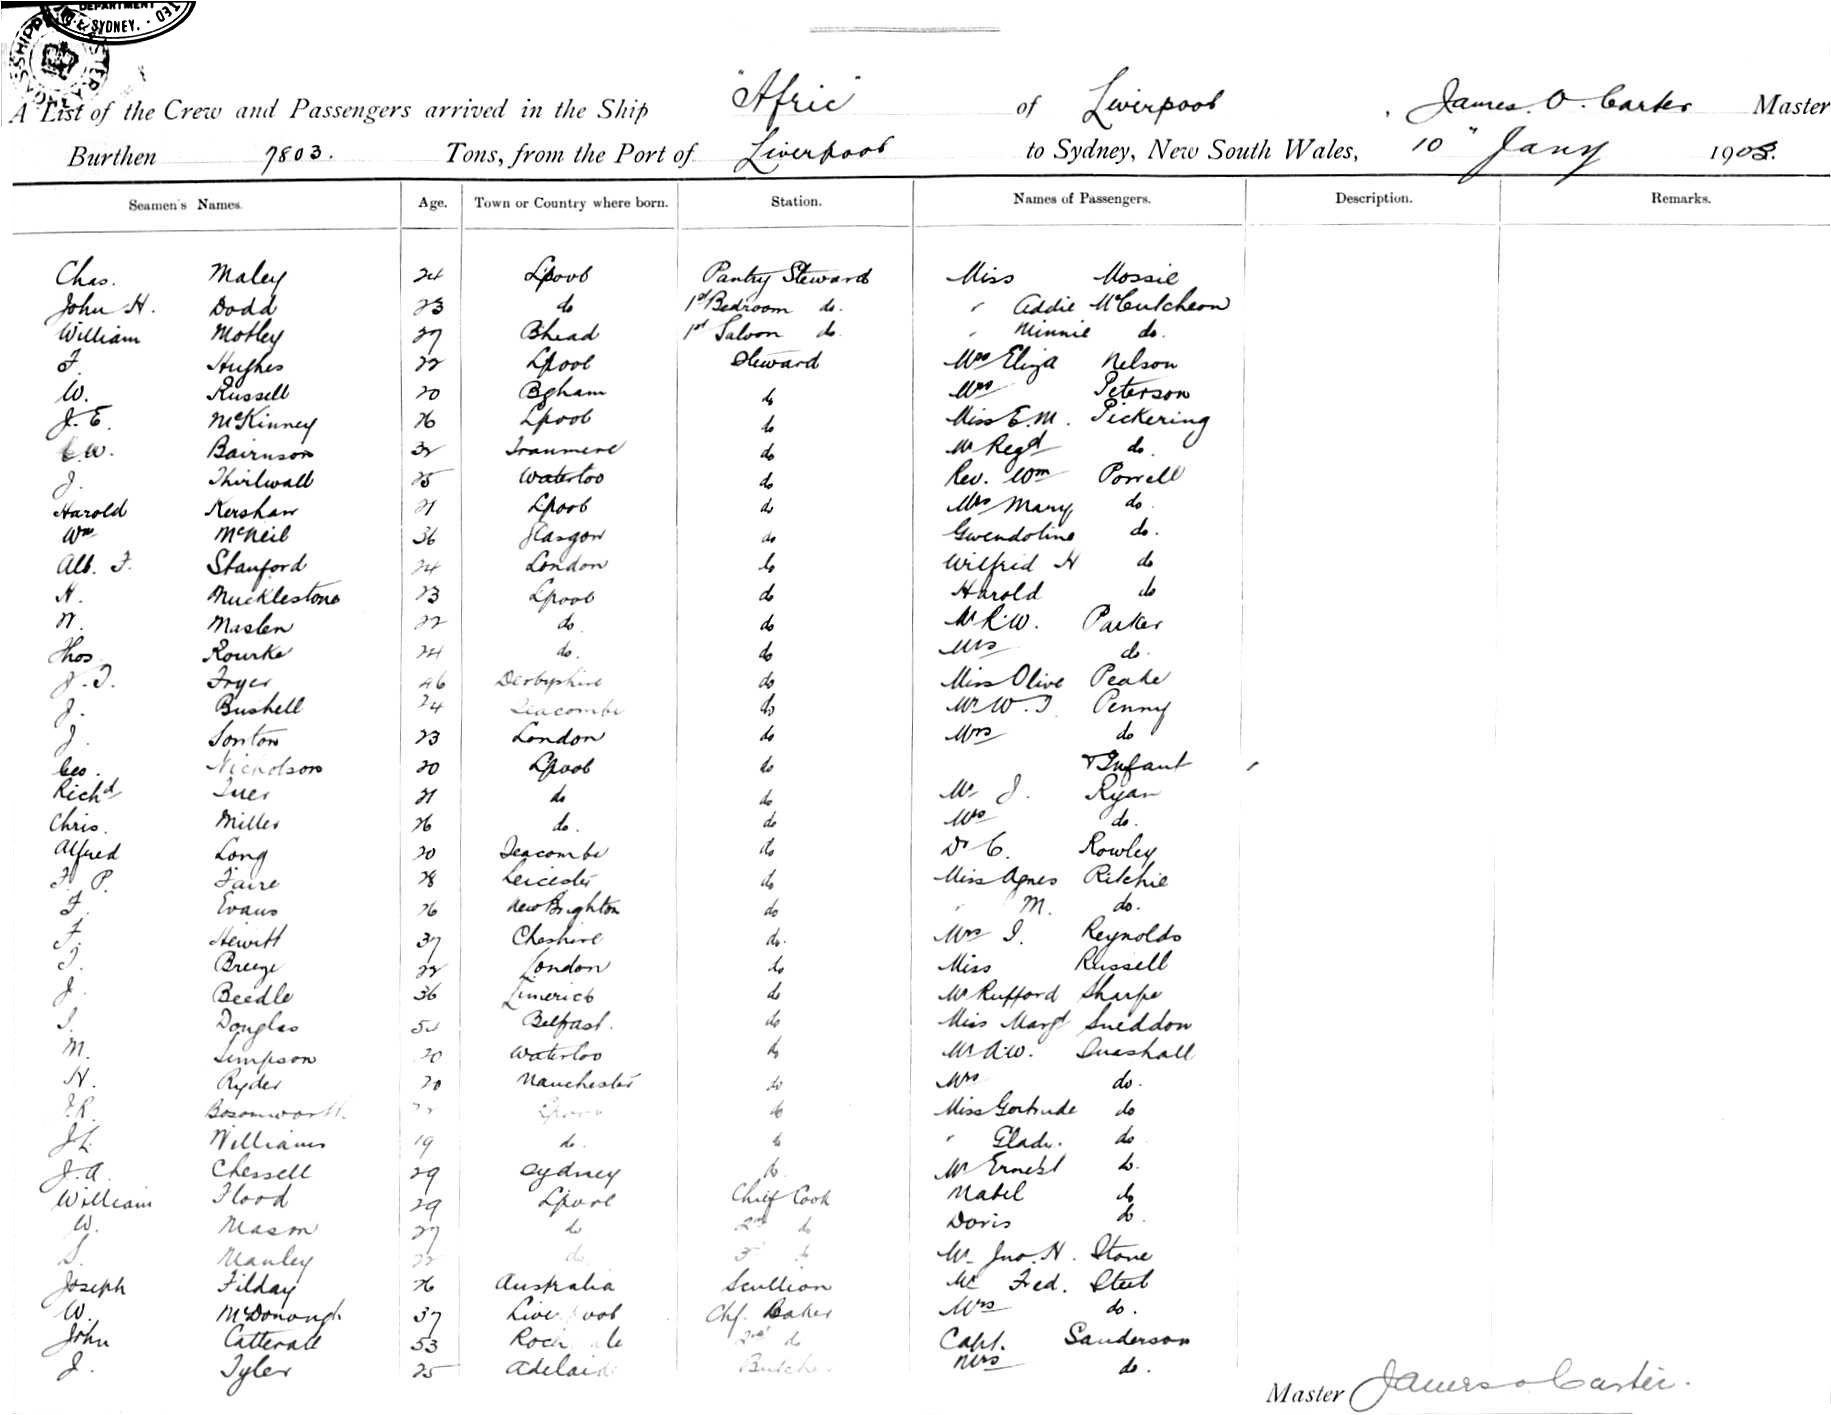 DEPARTMENT
SYDNEY.
A List of the Crew and Passengers arrived in the Ship "Afric" of Liverpool, James. O. Carter Master
Burthen 7803. Tons, from the Port of Liverpool to Sydney, New South Wales, 10" Jany 1903.
Seamen's Names. Age. Town or Country where born. Station. Names of Passengers. Description. Remarks.
Chas. Maley 24 Lpool Pantry Steward Miss Mossie
John H. Dodd 23 do 1st Bedroom do. " Addie McCutcheon
William Motley 27 Bhead 1st Saloon do. " Minnie do.
F. Hughes 22 Lpool Steward Mrs Eliza Nelson
W. Russell 20 Bgham do Mrs Peterson
J. E. McKinney 26 Lpool do Miss E.M. Pickering
C.W. Bairnson 32 Tranmere do Mr Regd do.
J. Thirlwall 25 Waterloo do Rev. Wm Powell
Harold Kershaw 21 Lpool do Mrs Mary do.
Wm McNeil 36 Glasgow do Gwendoline do.
Alb. F. Stanford 24 London do Wilfrid H do
H. Mucklestone 23 Lpool do Harold do
W. Maslen 22 do. do Mr R.W. Parker
Thos Rourke 24 do. do Mrs do.
J. T. Fryer 46 Derbyshire do Miss Olive Peake
J. Bushell 24 do Mr W. J. Penny
J. 23 London do Mrs do
Geo. Nicholson 20 Lpool do & Infant
Richd 21 do do Mr J. Ryan
Chris. Miller 26 do. do Mrs do.
Alfred Long 20 do Dr C. Rowley
F. P. Faire 28 Leicester do Miss Agnes Ritchie
F. Evans 26 New Brighton do " M. do.
F. Hewitt 37 Cheshire do. Mrs I. Reynolds
T. Breeze 22 London do Miss Russell
J. Beedle 36 Limerick do Mr Rufford Sharpe
Douglas Belfast. do Miss Margt Sneddon
M. Simpson 20 Waterloo do Mr A.W.
H. Ryder 20 Manchester do Mrs do.
Bosomworth. 22 Lpool do Miss Gertrude do
J L. Williams 19 do. do " do
J. A. Chessell 29 Sydney do. Mr Ernest do.
William Flood 29 Lpool Chief Cook Mabel do
W. Mason 27 do 2nd do Doris do.
S. Manley 22 do 3rd do Mr Jno. H. Stone
Joseph Filday 26 Australia Scullion Mr Fred. Steel
W. McDonough 37 Liverpool Chf. Baker Mrs do.
John Catterall 53 Roch le 2nd do Capt. Sanderson
J. Tyler 25 Adelaid Butcher Mrs do.
Master James O Carter.